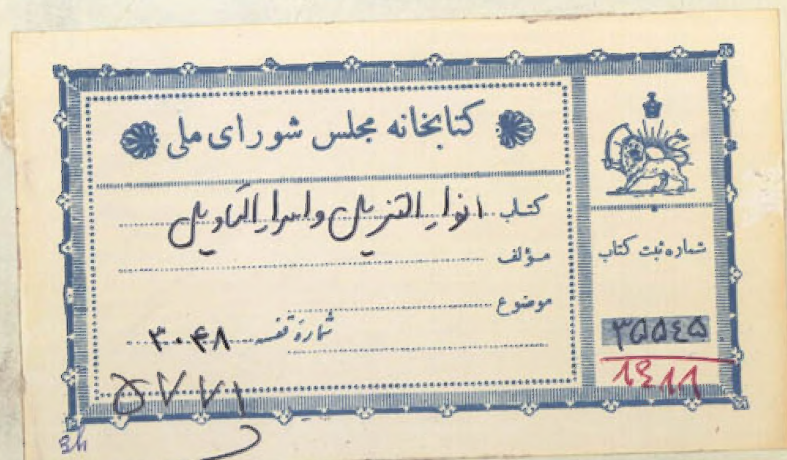 کتابخانه مجلس شورای ملی
کتاب انوار التنزیل و اسرار التأویل
مؤلف
موضوع
شمارهٔ قفسه ۳۰۴۸
شماره ثبت کتاب
۳۵۵٤۵